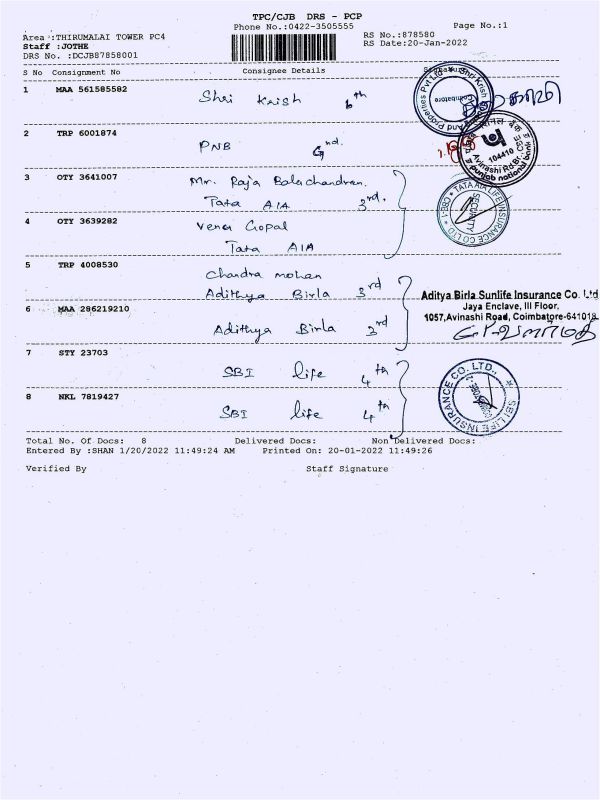 TPC/CJB DRS - PCP
Phone No.:0422-3505555
Page No.:1
Area :THIRUMALAI TOWER PC4
Staff :JOTHE
DRS No. :DCJB87858001
RS No.:878580
RS Date:20-Jan-2022
S No Consignment No Consignee Details
1 MAA 561585582 Shri Krish 6th
Coimbatore
2 TRP 6001874 PNB Gnd.
104410
punjab national bank
3 OTY 3641007 Mr. Raja Balachandran.
Tata AIA 3rd.
TATA AIA LIFE INSURANCE CO LTD
SECURITY
4 OTY 3639282 Venu Gopal
Tata AIA
5 TRP 4008530 Chandra mohan
Adithya Birla 3rd
Aditya Birla Sunlife Insurance Co. Ltd
Jaya Enclave, III Floor,
1057,Avinashi Road, Coimbatore-641018
6 MAA 286219210 Adithya Birla 3rd
7 STY 23703 SBI life 4th
8 NKL 7819427 SBI life 4th
SBI LIFE INSURANCE CO. LTD.,
Total No. Of Docs: 8 Delivered Docs: Non Delivered Docs:
Entered By :SHAN 1/20/2022 11:49:24 AM Printed On: 20-01-2022 11:49:26
Verified By Staff Signature